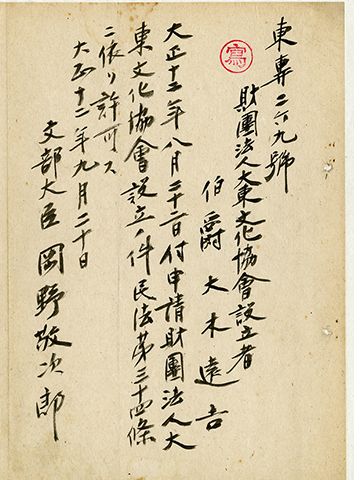 東專二六九號
寫
財團法人大東文化協會設立者
伯爵大木遠吉
大正十二年八月二十二日付申請財團法人大
東文化協會設立ノ件民法第三十四條
ニ依リ許可ス
大正十二年九月二十日
文部大臣岡野敬次郎